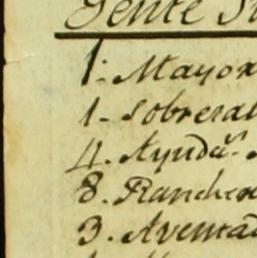 Gente S
1. Mayor
1. Sobresal
4. Ayudã.
8. Ranchero
3. Aventad